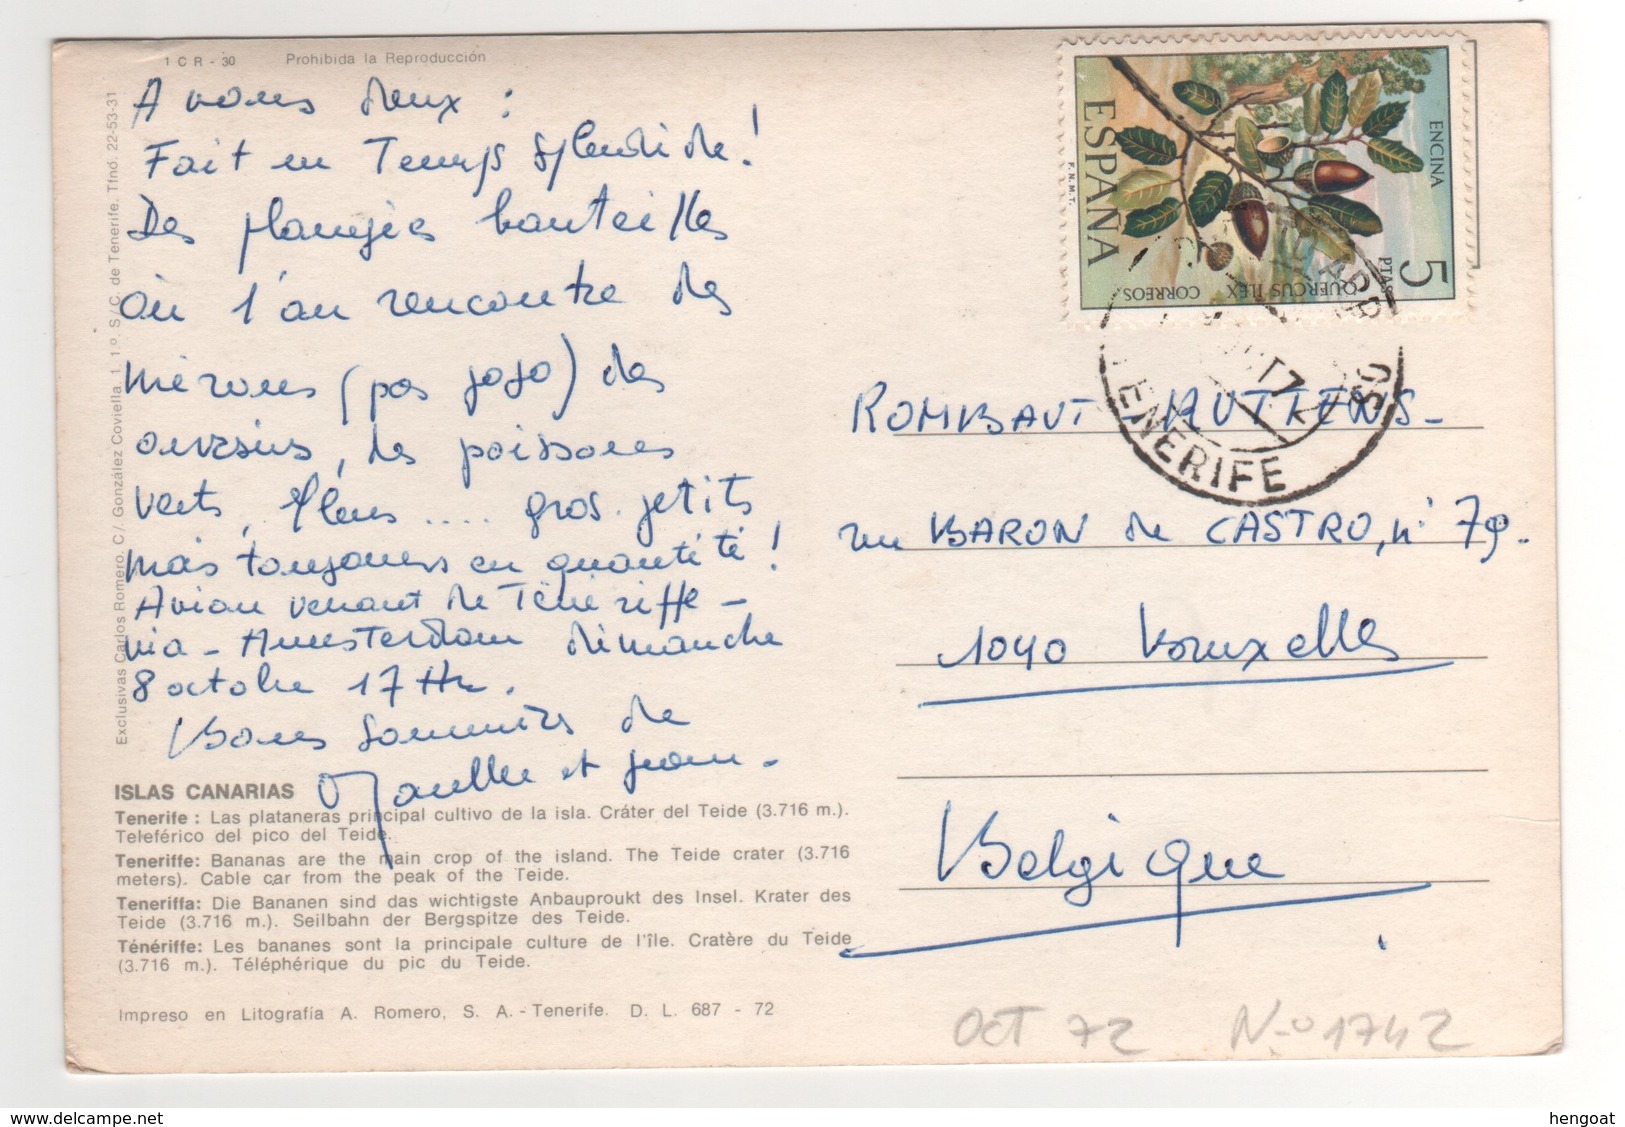 1 C R - 30 Prohibida la Reproducción
A vous deux :
Fait un Temps splendide !
Des plongées bouteilles
où l'on rencontre des
mérous (pas jojo) des
oursins, des poissons
verts, bleus .... gros. petits
mais toujours en quantité !
Avion venant de Ténériffe -
via - Amsterdam dimanche
8 octobre 17 Hr.
Bons souvenirs de
et Jean -
Exclusivas Carlos Romero. C/. González Coviella. 1. 1.º. S/C. de Tenerife. Tfnó. 22-53-31
ISLAS CANARIAS
Tenerife : Las plataneras principal cultivo de la isla. Cráter del Teide (3.716 m.).
Teleférico del pico del Teide.
Teneriffe: Bananas are the main crop of the island. The Teide crater (3.716
meters). Cable car from the peak of the Teide.
Teneriffa: Die Bananen sind das wichtigste Anbauproukt des Insel. Krater des
Teide (3.716 m.). Seilbahn der Bergspitze des Teide.
Ténériffe: Les bananes sont la principale culture de l'île. Cratère du Teide
(3.716 m.). Téléphérique du pic du Teide.
Impreso en Litografía A. Romero, S. A. - Tenerife. D. L. 687 - 72
ESPAÑA
F.N.M.T.
ENCINA
5
PTAS
QUERCUS ILEX CORREOS
TENERIFE
ROMBAUT RUTTENS -
rue BARON de CASTRO, n° 79.
1040 Bruxelles
Belgique
OCT 72 N.o 1742
www.delcampe.net
hengoat